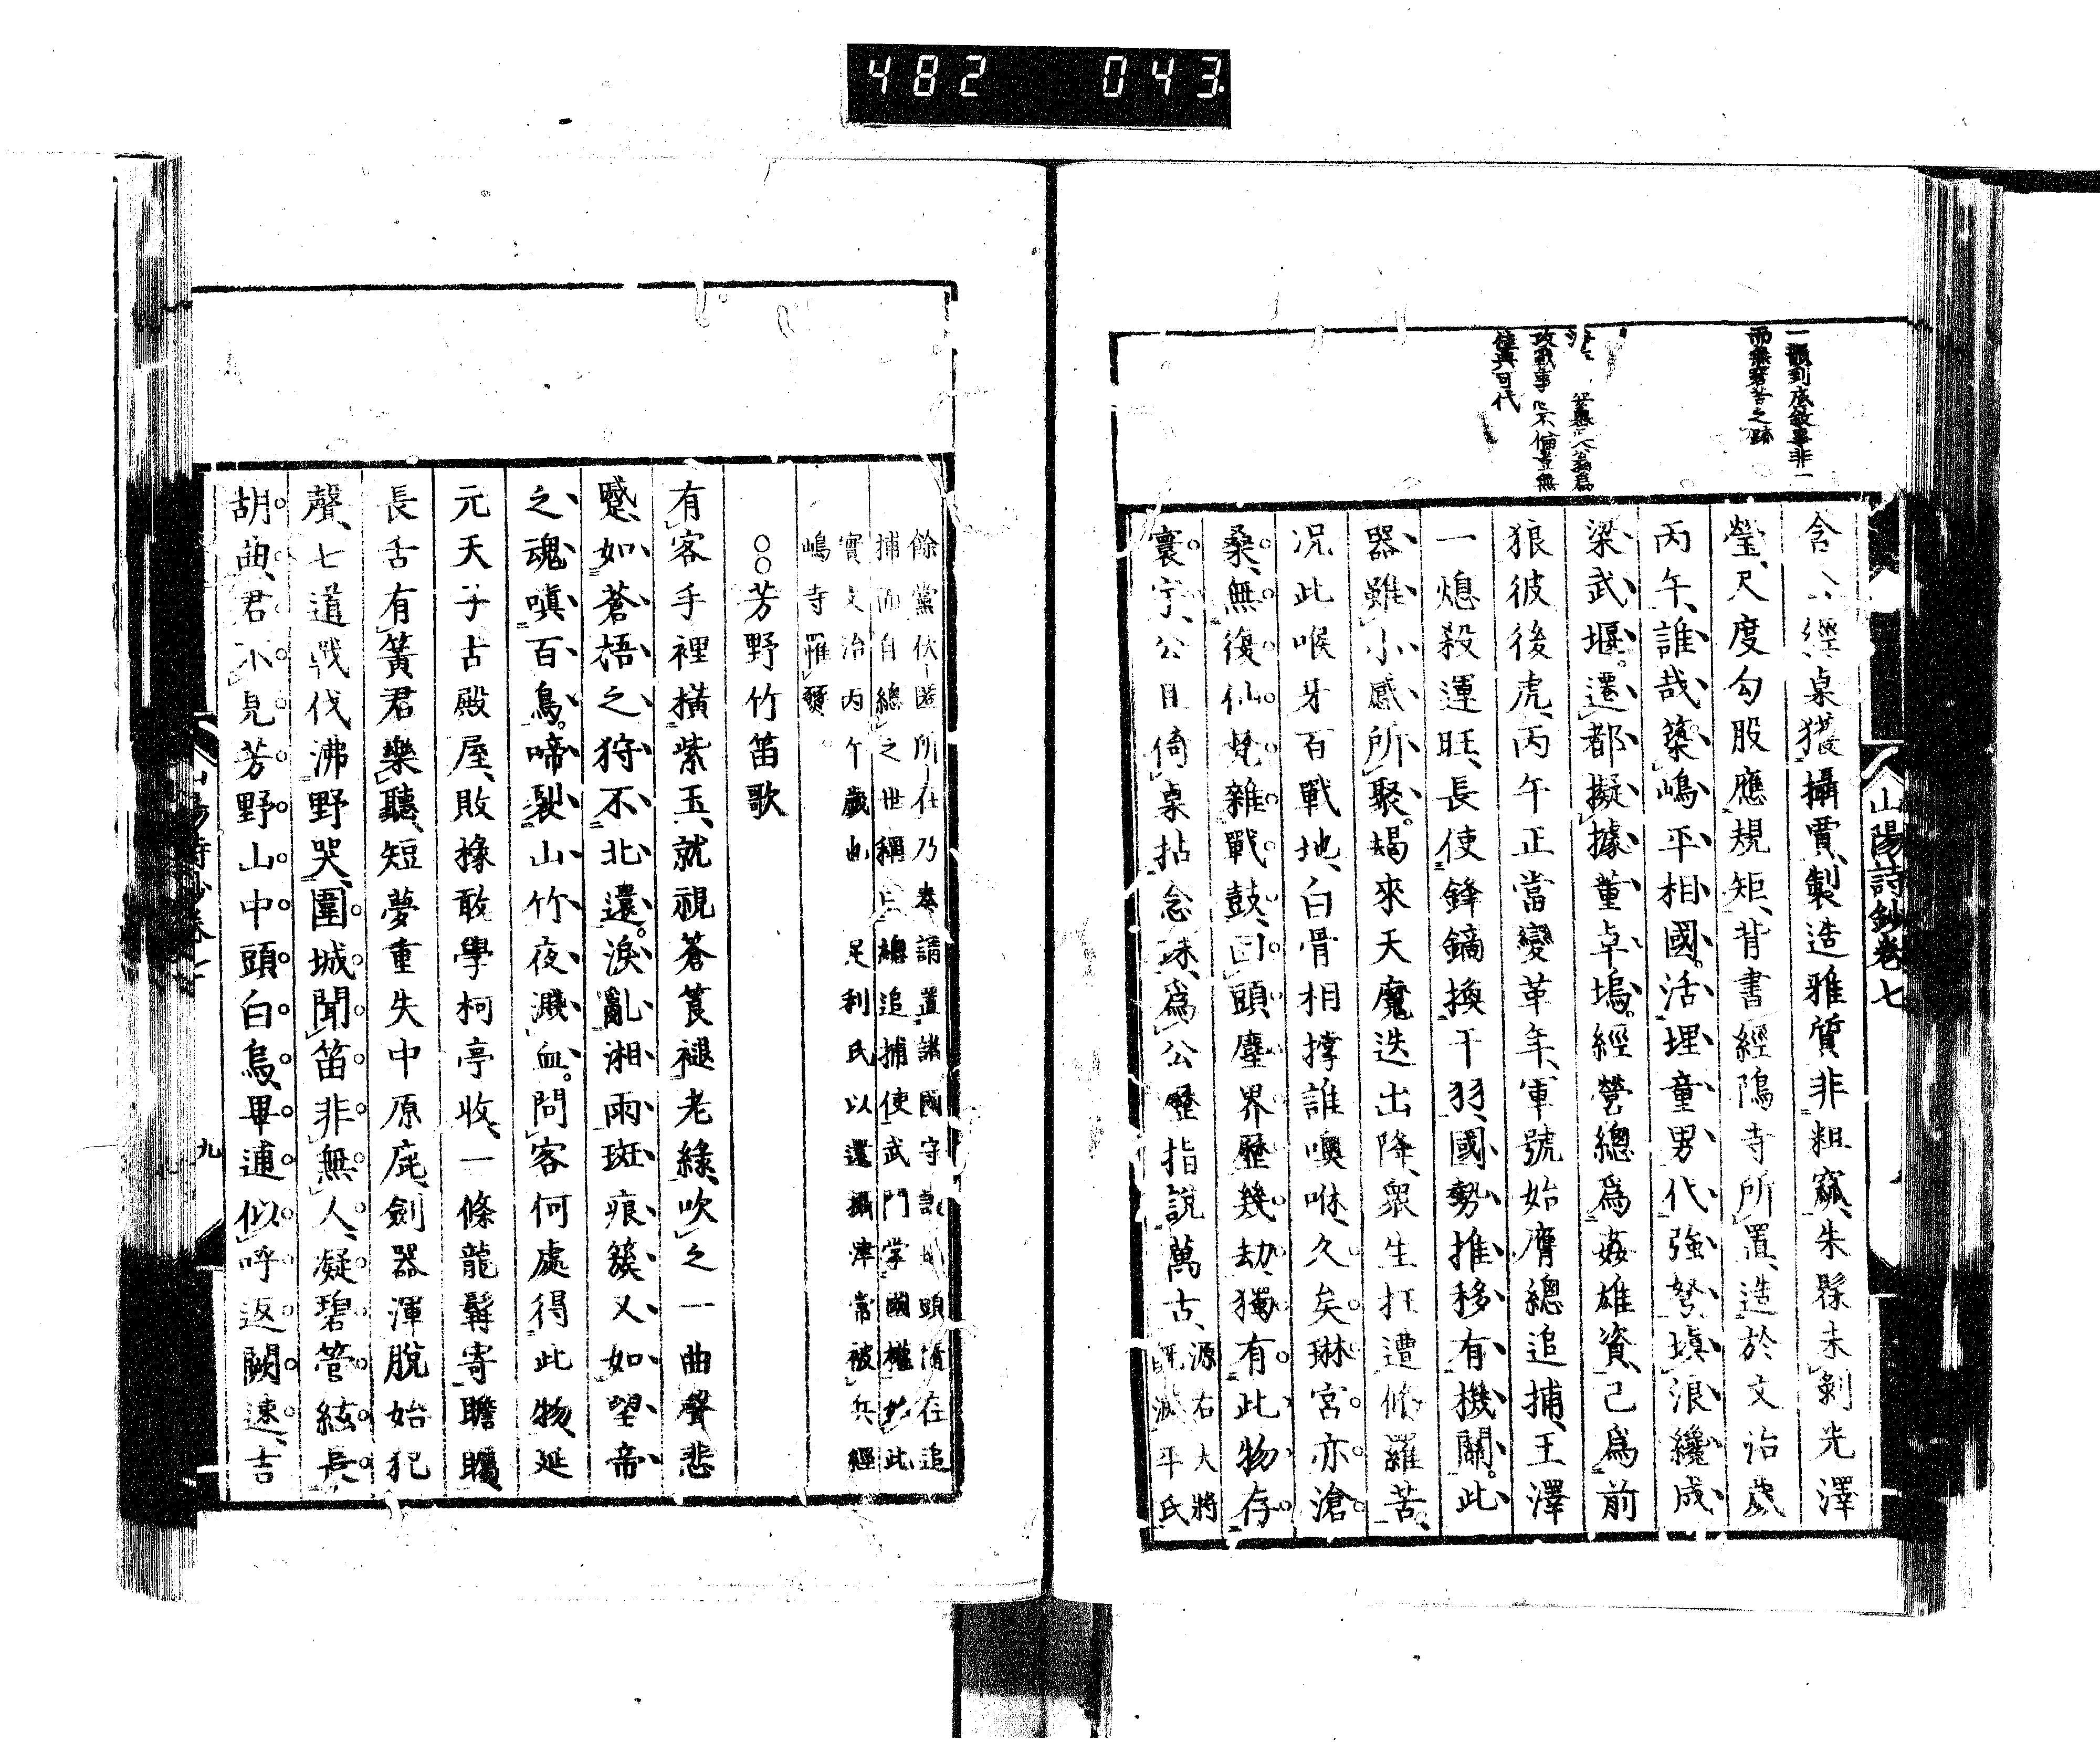 482 043
一韻到底敘事非一
而無窘苦之跡
攻戰事 不備豈無
椽與可代
山陽詩鈔卷七
含 經桌獲攝賈製造雅質非粗窳朱髹未剝光澤
瑩尺度勾股應規矩背書經隝寺所置造於文治歲
丙午誰哉築嶋平相國活埋童男代強弩塡浪纔成
梁武堰還都擬據董卓塢經營總爲姦雄資己爲前
狼彼後虎丙午正當變革年軍號始膺總追捕王澤
一熄殺運旺長使鋒鏑換干羽國勢推移有機關此
器雖小感所聚朅來天魔迭出降衆生抂遭修羅苦
况此喉牙百戰地白骨相撑誰噢咻久矣琳宮亦滄
桑無復仙梵雜戰鼓回頭塵界歷幾劫獨有此物存
寰宇公且倚桌拈念珠爲公歷指説萬古
源右大將
既滅平氏
餘黨伏匿所在乃奏請置諸國守 地頭隋在追
捕而自總之世稱 總追捕使武門掌國權始此
實文治丙午歲也 足利氏以還攝津常被兵經
嶋寺罹
○○芳野竹笛歌
有客手裡橫紫玉就視蒼筤褪老綠吹之一曲聲悲
蹙如蒼梧之狩不北還淚亂湘雨斑痕簇又如望帝
之魂嗔百鳥啼裂山竹夜濺血問客何處得此物延
元天子古殿屋敗椽敢學柯亭收一條龍髯寄瞻矚
長舌有簧君樂聽短夢重失中原鹿劍器渾脱始犯
聲七道戰伐沸野哭圍城聞笛非無人凝碧管絃長
胡曲君不見芳野山中頭白烏畢逋似呼返闕速吉
山陽詩鈔卷七
九